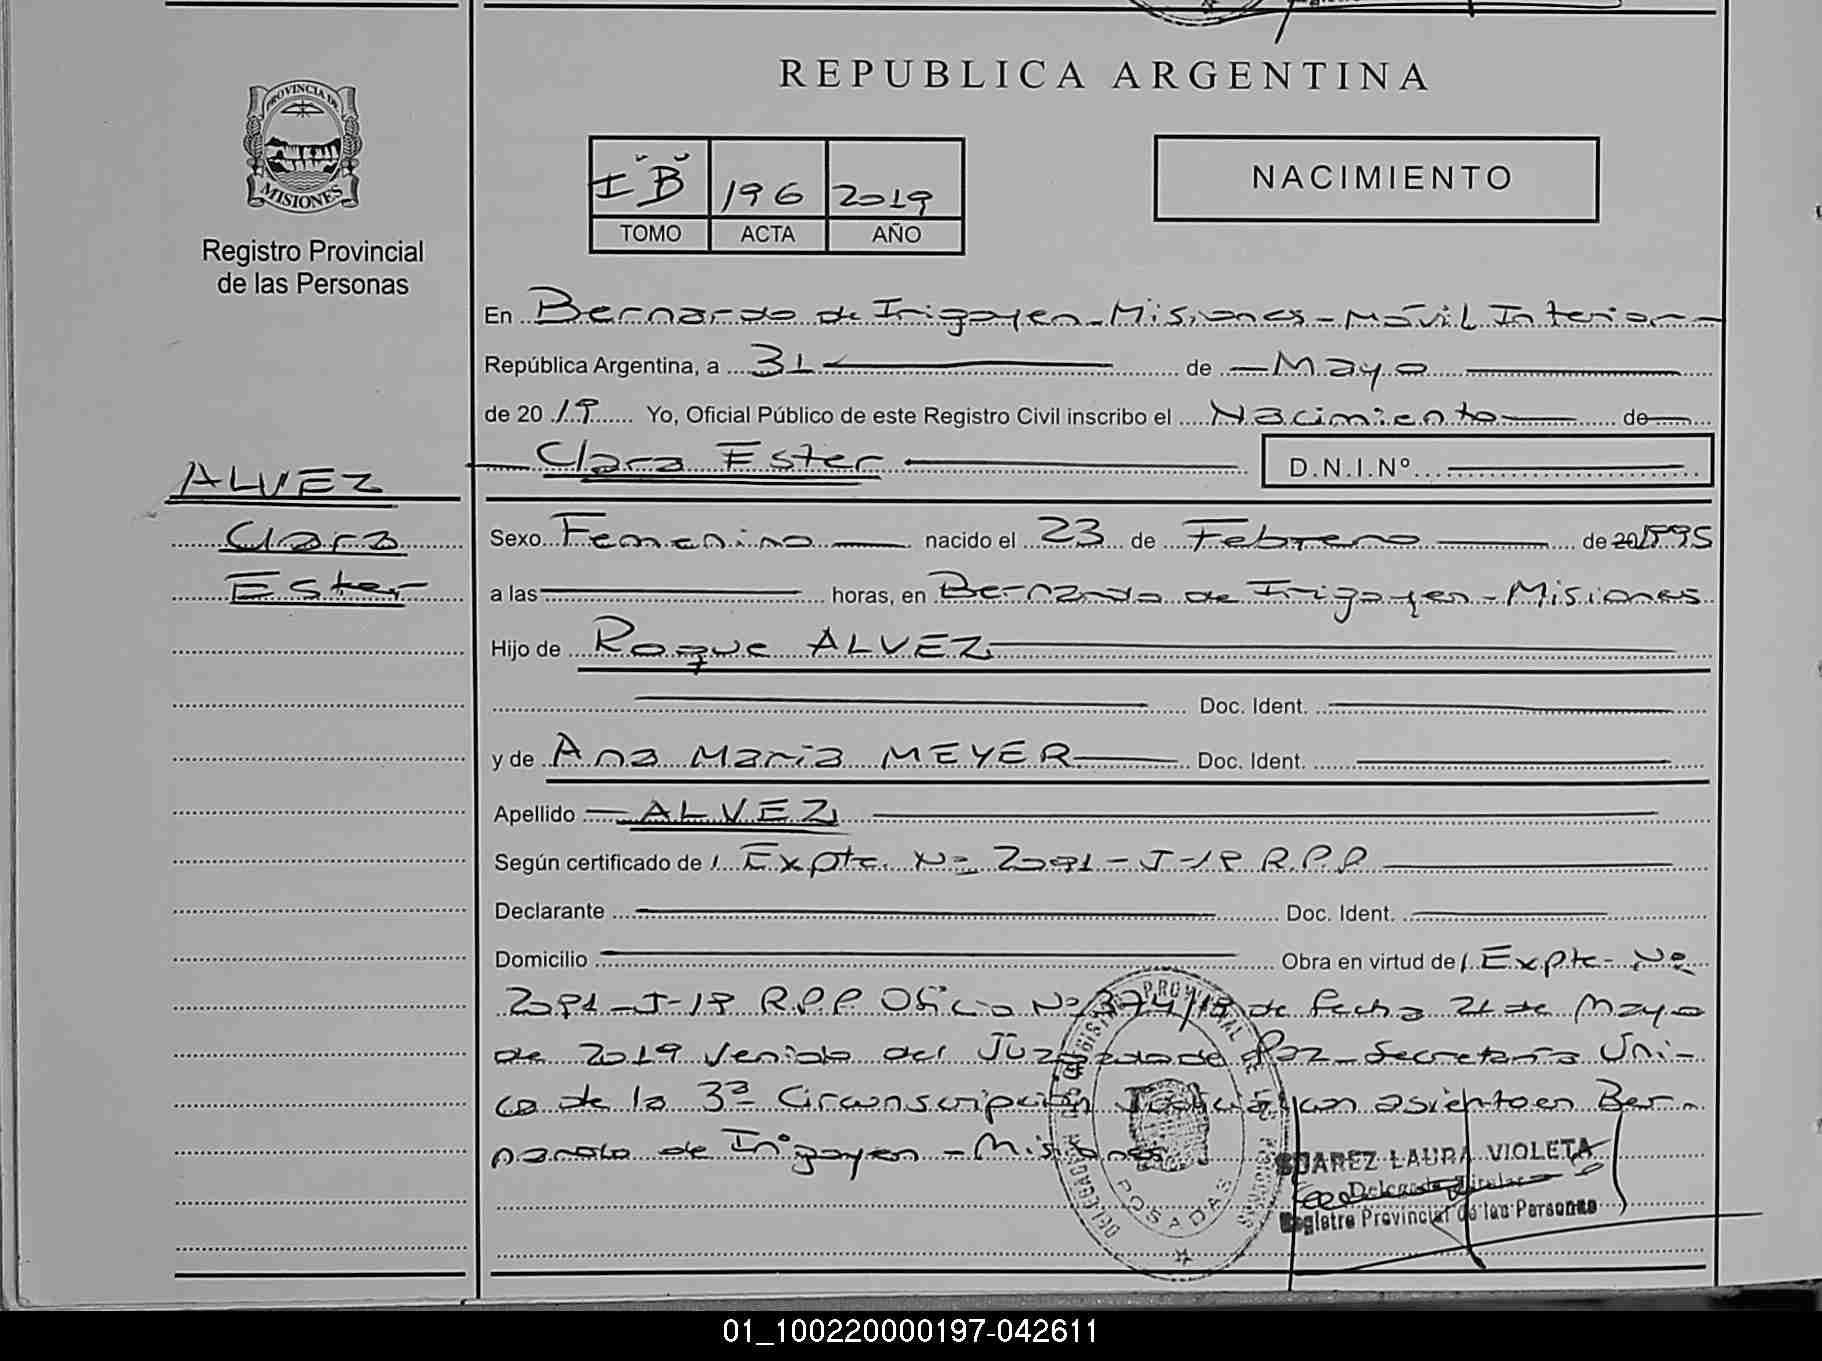 REPUBLICA ARGENTINA
PROVINCIA DE
MISIONES
Registro Provincial
de las Personas
I "B" 196 2019
TOMO ACTA AÑO
NACIMIENTO
En Bernardo de Irigoyen - Misiones - Móvil Interior -
República Argentina, a 31 de Mayo
de 2019 Yo, Oficial Público de este Registro Civil inscribo el Nacimiento de
Clara Ester D.N.I.Nº
ALVEZ
Clara
Ester
Sexo Femenino nacido el 23 de Febrero de 20 1995
a las horas, en Bernardo de Irigoyen - Misiones
Hijo de Roque ALVEZ
Doc. Ident.
y de Ana Maria MEYER Doc. Ident.
Apellido ALVEZ
Según certificado de Expte. Nº 2091-J-18 R.P.P
Declarante Doc. Ident.
Domicilio Obra en virtud de Expte- Nº
2091-J-18 R.P.P Oficio Nº de fecha 21 de Mayo
de 2019 venido del Juzgado de Paz - Secretaría Úni-
ca de la 3ª Circunscripción Judicial con asiento en Ber-
nardo de Irigoyen - Misiones
POSADAS
SUAREZ LAURA VIOLETA
Delegada Titular
Registro Provincial de las Personas
01_100220000197-042611